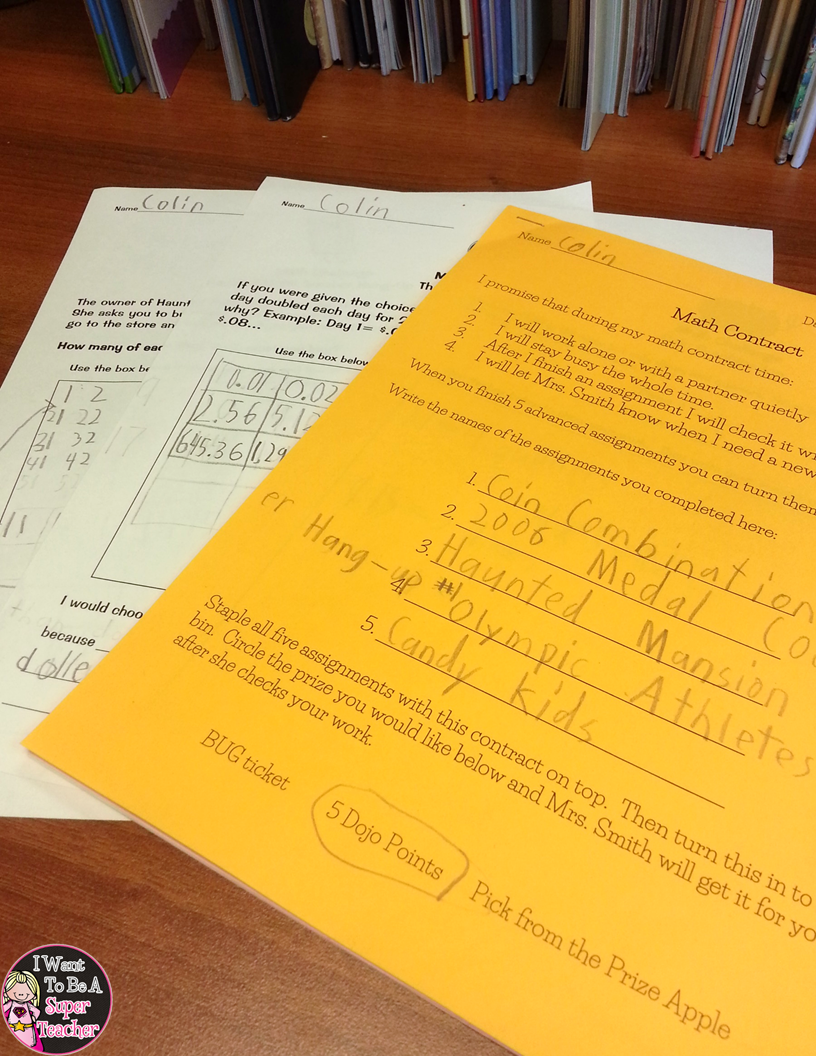 Name Colin
The owner of Haunt
She asks you to bu
go to the store an
How many of eac
Use the box be
1 2
21 22
31 32
41 42
11
Name Colin
If you were given the choice
day doubled each day for 2
why? Example: Day 1= $.0
$.08...
Use the box below
0.01 0.02
2.56 5.12
645.36 1,29
I would choo
because
dolle
Name Colin
Math Contract
I promise that during my math contract time:
1. I will work alone or with a partner quietly
2. I will stay busy the whole time.
3. After I finish an assignment I will check it wi
4. I will let Mrs. Smith know when I need a new
When you finish 5 advanced assignments you can turn them
Write the names of the assignments you completed here:
1. Coin Combination
2. 2006 Medal Cou
3. Haunted Mansion
er Hang-up #1
4. Olympic Athletes
5. Candy Kids
Staple all five assignments with this contract on top. Then turn this in to
bin. Circle the prize you would like below and Mrs. Smith will get it for yo
after she checks your work.
BUG ticket
5 Dojo Points
Pick from the Prize Apple
I Want
To Be A
Super
Teacher